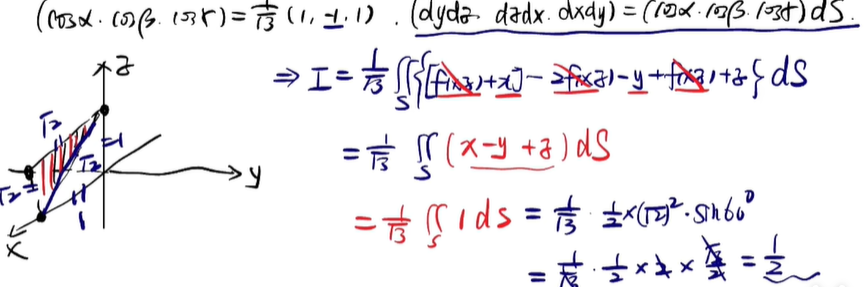 (cosα. cosβ. cosγ) = 1/√3 (1, -1, 1) . (dydz. dzdx. dxdy) = (cosα. cosβ. cosγ) dS.
⇒ I = 1/√3 ∬S {[f(x,z)+x] - 2f(x,z) - y + f(x,z) + z} dS
= 1/√3 ∬S (x-y+z) dS
= 1/√3 ∬S 1 dS = 1/√3 · 1/2 × (√2)² · sin60°
= 1/√3 · 1/2 × 2 × √3/2 = 1/2
z
√2
√2
√2
1
y
x